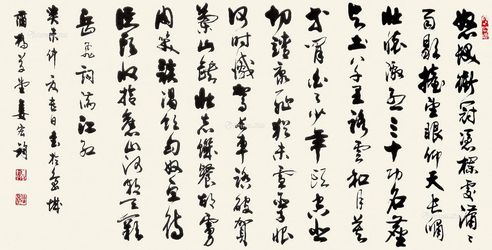 怒髮衝冠憑欄處瀟々
雨歇擡望眼仰天長嘯
壯懷激烈三十功名塵
與土八千里路雲和月莫
等閒白了少年頭空悲
切靖康恥猶未雪臣子恨
何時滅駕長車踏破賀
蘭山缺壯志饑餐胡虜
肉笑談渴飲匈奴血待
從頭收拾舊山河朝天闕
岳飛詞滿江紅